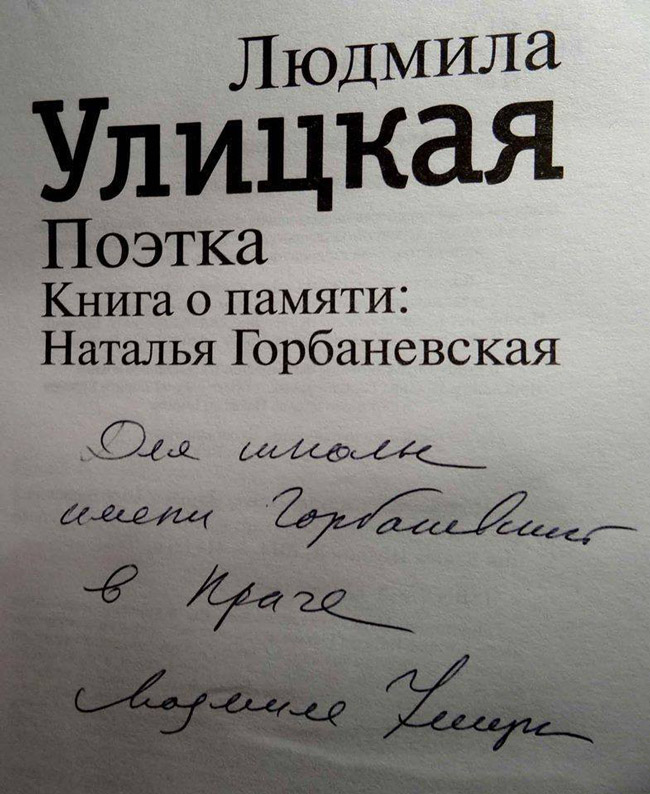 Людмила
Улицкая
Поэтка
Книга о памяти:
Наталья Горбаневская
Для школы
имени Горбаневской
в Праге
Людмила Улицкая